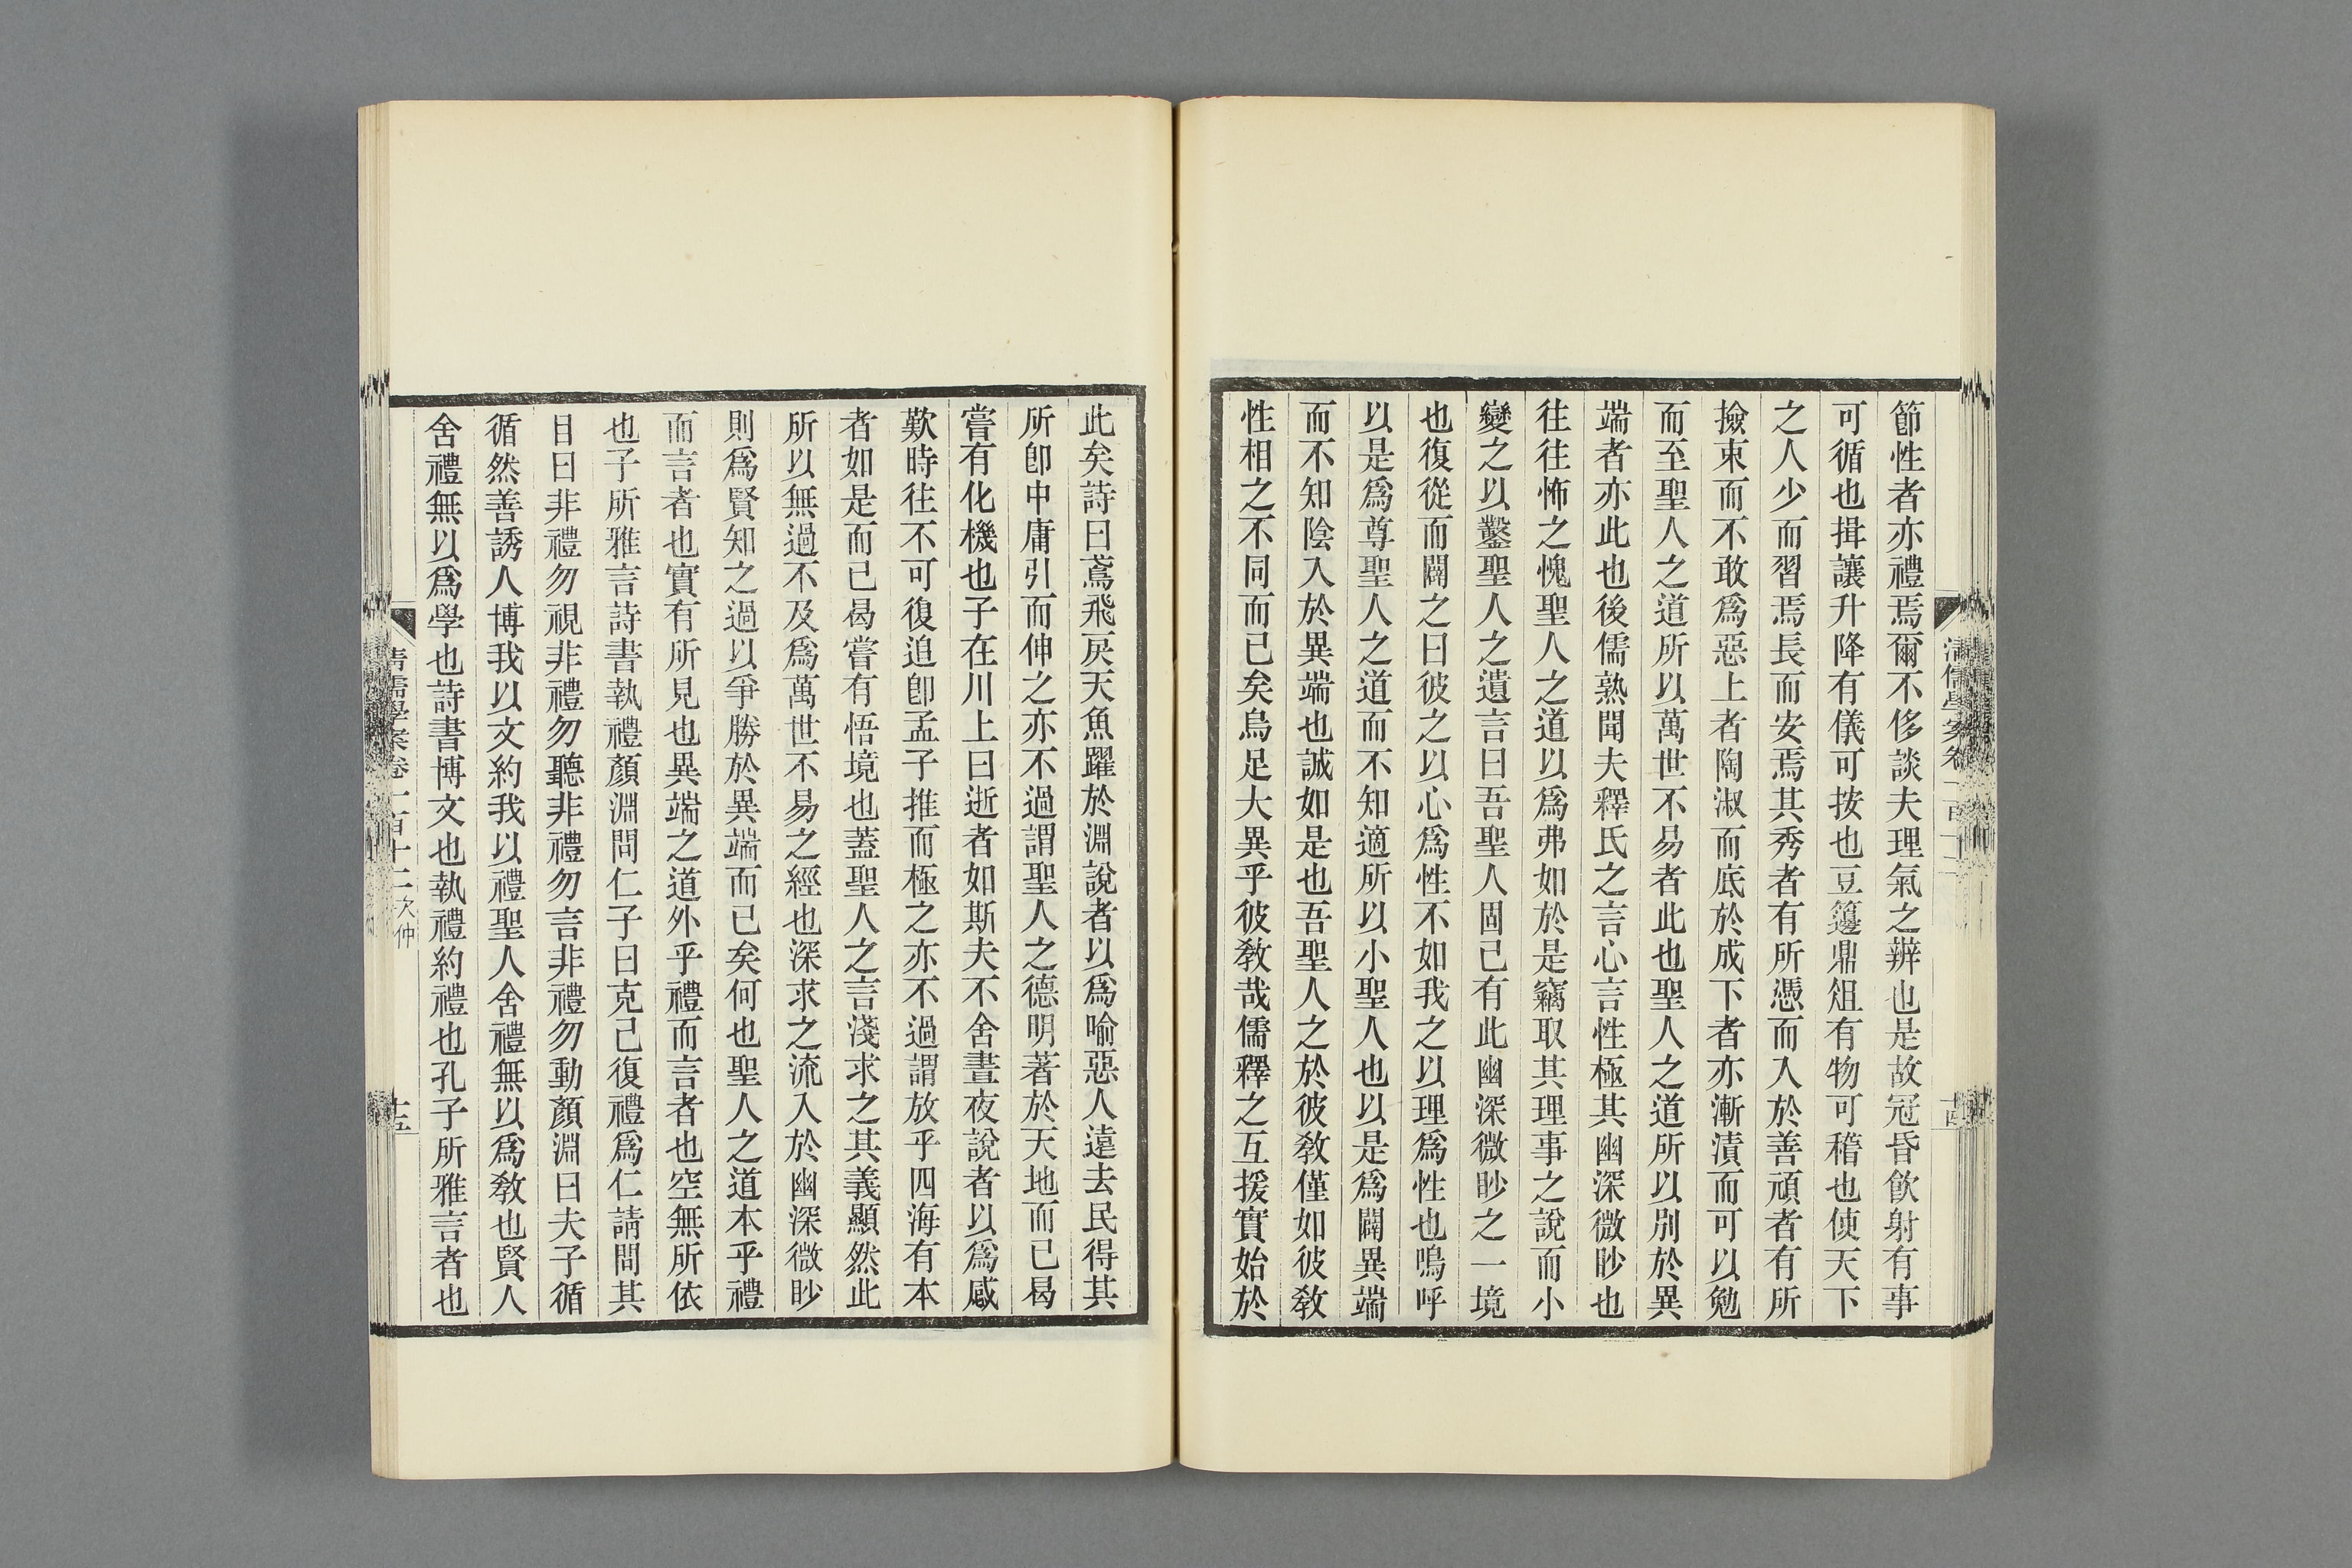 節性者亦禮焉爾不侈談夫理氣之辨也是故冠昏飮射有事
可循也揖讓升降有儀可按也豆籩鼎俎有物可稽也使天下
之人少而習焉長而安焉其秀者有所憑而入於善頑者有所
撿束而不敢爲惡上者陶淑而底於成下者亦漸漬而可以勉
而至聖人之道所以萬世不易者此也聖人之道所以別於異
端者亦此也後儒熟聞夫釋氏之言心言性極其幽深微眇也
往往怖之愧聖人之道以爲弗如於是竊取其理事之說而小
變之以鑿聖人之遺言曰吾聖人固已有此幽深微眇之一境
也復從而闢之曰彼之以心爲性不如我之以理爲性也嗚呼
以是爲尊聖人之道而不知適所以小聖人也以是爲闢異端
而不知陰入於異端也誠如是也吾聖人之於彼敎僅如彼敎
性相之不同而已矣烏足大異乎彼敎哉儒釋之互援實始於
此矣詩曰鳶飛戾天魚躍於淵說者以爲喻惡人遠去民得其
所卽中庸引而伸之亦不過謂聖人之德明著於天地而已曷
嘗有化機也子在川上曰逝者如斯夫不舍晝夜說者以爲感
歎時往不可復追卽孟子推而極之亦不過謂放乎四海有本
者如是而已曷嘗有悟境也蓋聖人之言淺求之其義顯然此
所以無過不及爲萬世不易之經也深求之流入於幽深微眇
則爲賢知之過以爭勝於異端而已矣何也聖人之道本乎禮
而言者也實有所見也異端之道外乎禮而言者也空無所依
也子所雅言詩書執禮顏淵問仁子曰克己復禮爲仁請問其
目曰非禮勿視非禮勿聽非禮勿言非禮勿動顏淵曰夫子循
循然善誘人博我以文約我以禮聖人舍禮無以爲敎也賢人
舍禮無以爲學也詩書博文也執禮約禮也孔子所雅言者也
清儒學案卷一百十二 次仲
十五